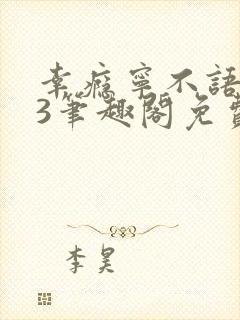 幸瘾宁不語
3笔趣阁免費
李昊